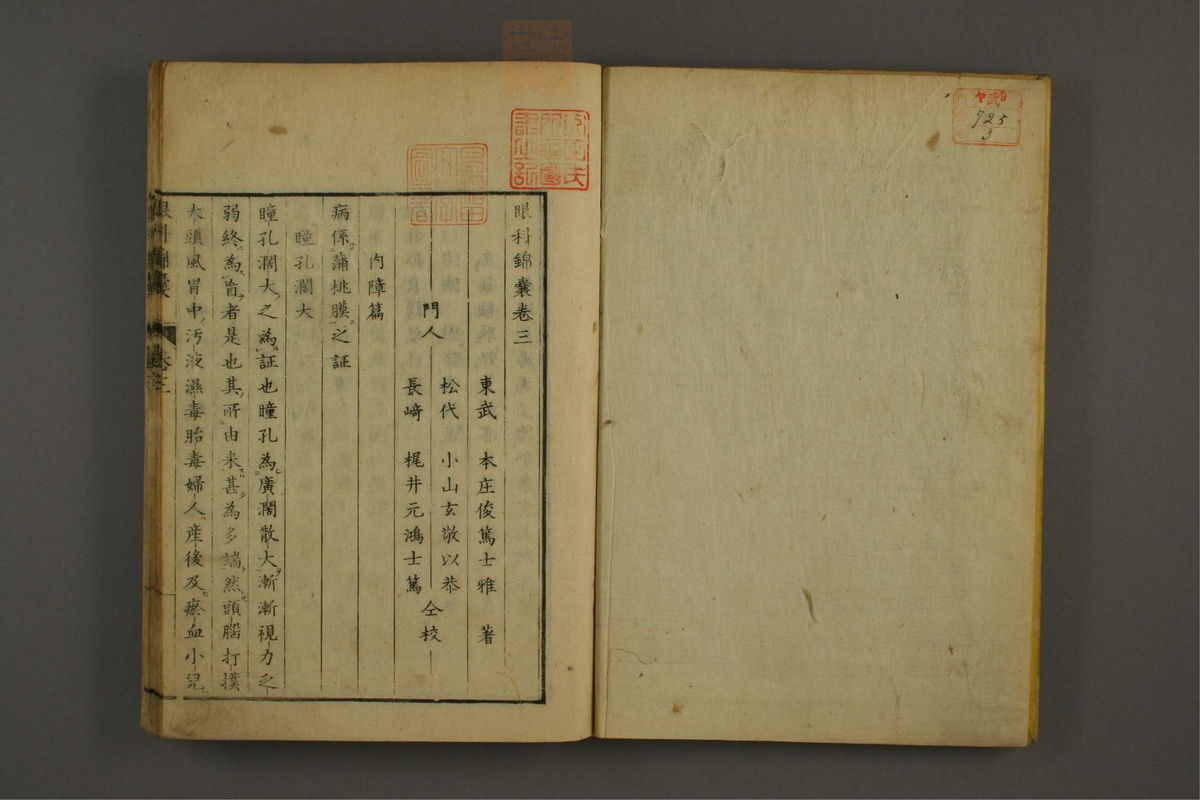 725
3
眼科錦囊卷三
東武 本庄俊篤士雅 著
門人 松代 小山玄敬以恭 仝校
長崎 梶井元鴻士篤
內障篇
病係蒲桃膜之証
瞳孔濶大
瞳孔濶大之為証也瞳孔為廣濶散大漸漸視力乏
弱終為盲者是也其所由来甚為多端然頭腦打撲
大頭風冒中汚液濕毒胎毒婦人產後及瘀血小兒
眼科錦囊 卷三